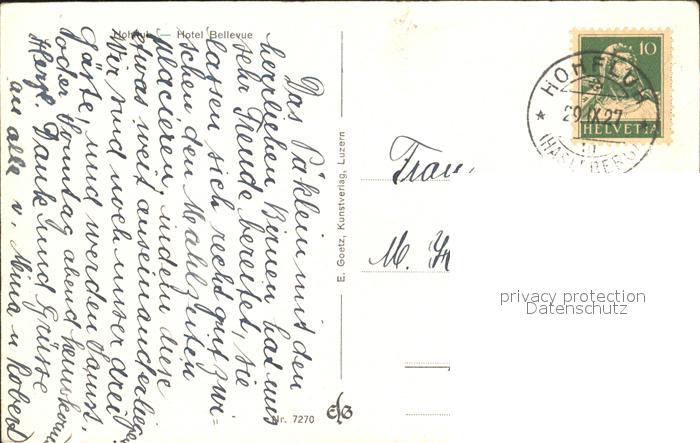 Hohfluh — Hotel Bellevue
Das Päklein mit den
herrlichen Birnen hat uns
sehr Freude bereitet, sie
lassen sich recht gut zwi-
schen den Mahlzeiten
placieren, indem diese
etwas weit auseinanderliegen.
Wir sind noch unser drei
Gäste, und werden Samst.
oder Sonntag abend heimkom
Herzl. Dank und Grüsse
an alle v. Mina u Robert
E. Goetz, Kunstverlag, Luzern
Nr. 7270
EG
10
HELVETIA
HOHFLUH
29.IX.27
(HASLIBERG)
Frau
M.
privacy protection
Datenschutz